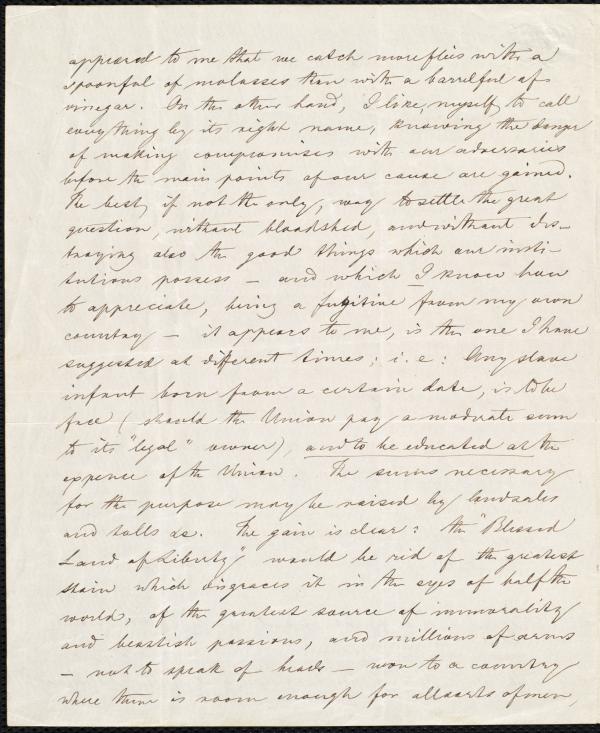 appeared to me that we catch more flies with a
spoonful of molasses than with a barrelful of
vinegar. On the other hand, I like, myself, to call
everything by its right name, knowing the danger
of making compromises with our adversaries
before the main points of our cause are gained.
The best, if not the only, way to settle the great
question, without bloodshed, and without des-
troying also the good things which our insti-
tutions possess – and which I know how
to appreciate, being a fugitive from my own
country – it appears to me, is the one I have
suggested at different times; i. e: Any slave
infant born from a certain date, is to be
free (should the Union pay a moderate sum
to its "legal" owner), and to be educated at the
expence of the Union. The sums necessary
for the purpose may be raised by landsales
and tolls &c. The gain is clear: the "Blessed
Land of Liberty" would be rid of the greatest
stain which disgraces it in the eyes of half the
world, of the greatest source of immorality
and beastish passions, and millions of arms
– not to speak of heads – won to a country
where there is room enough for all sorts of men,